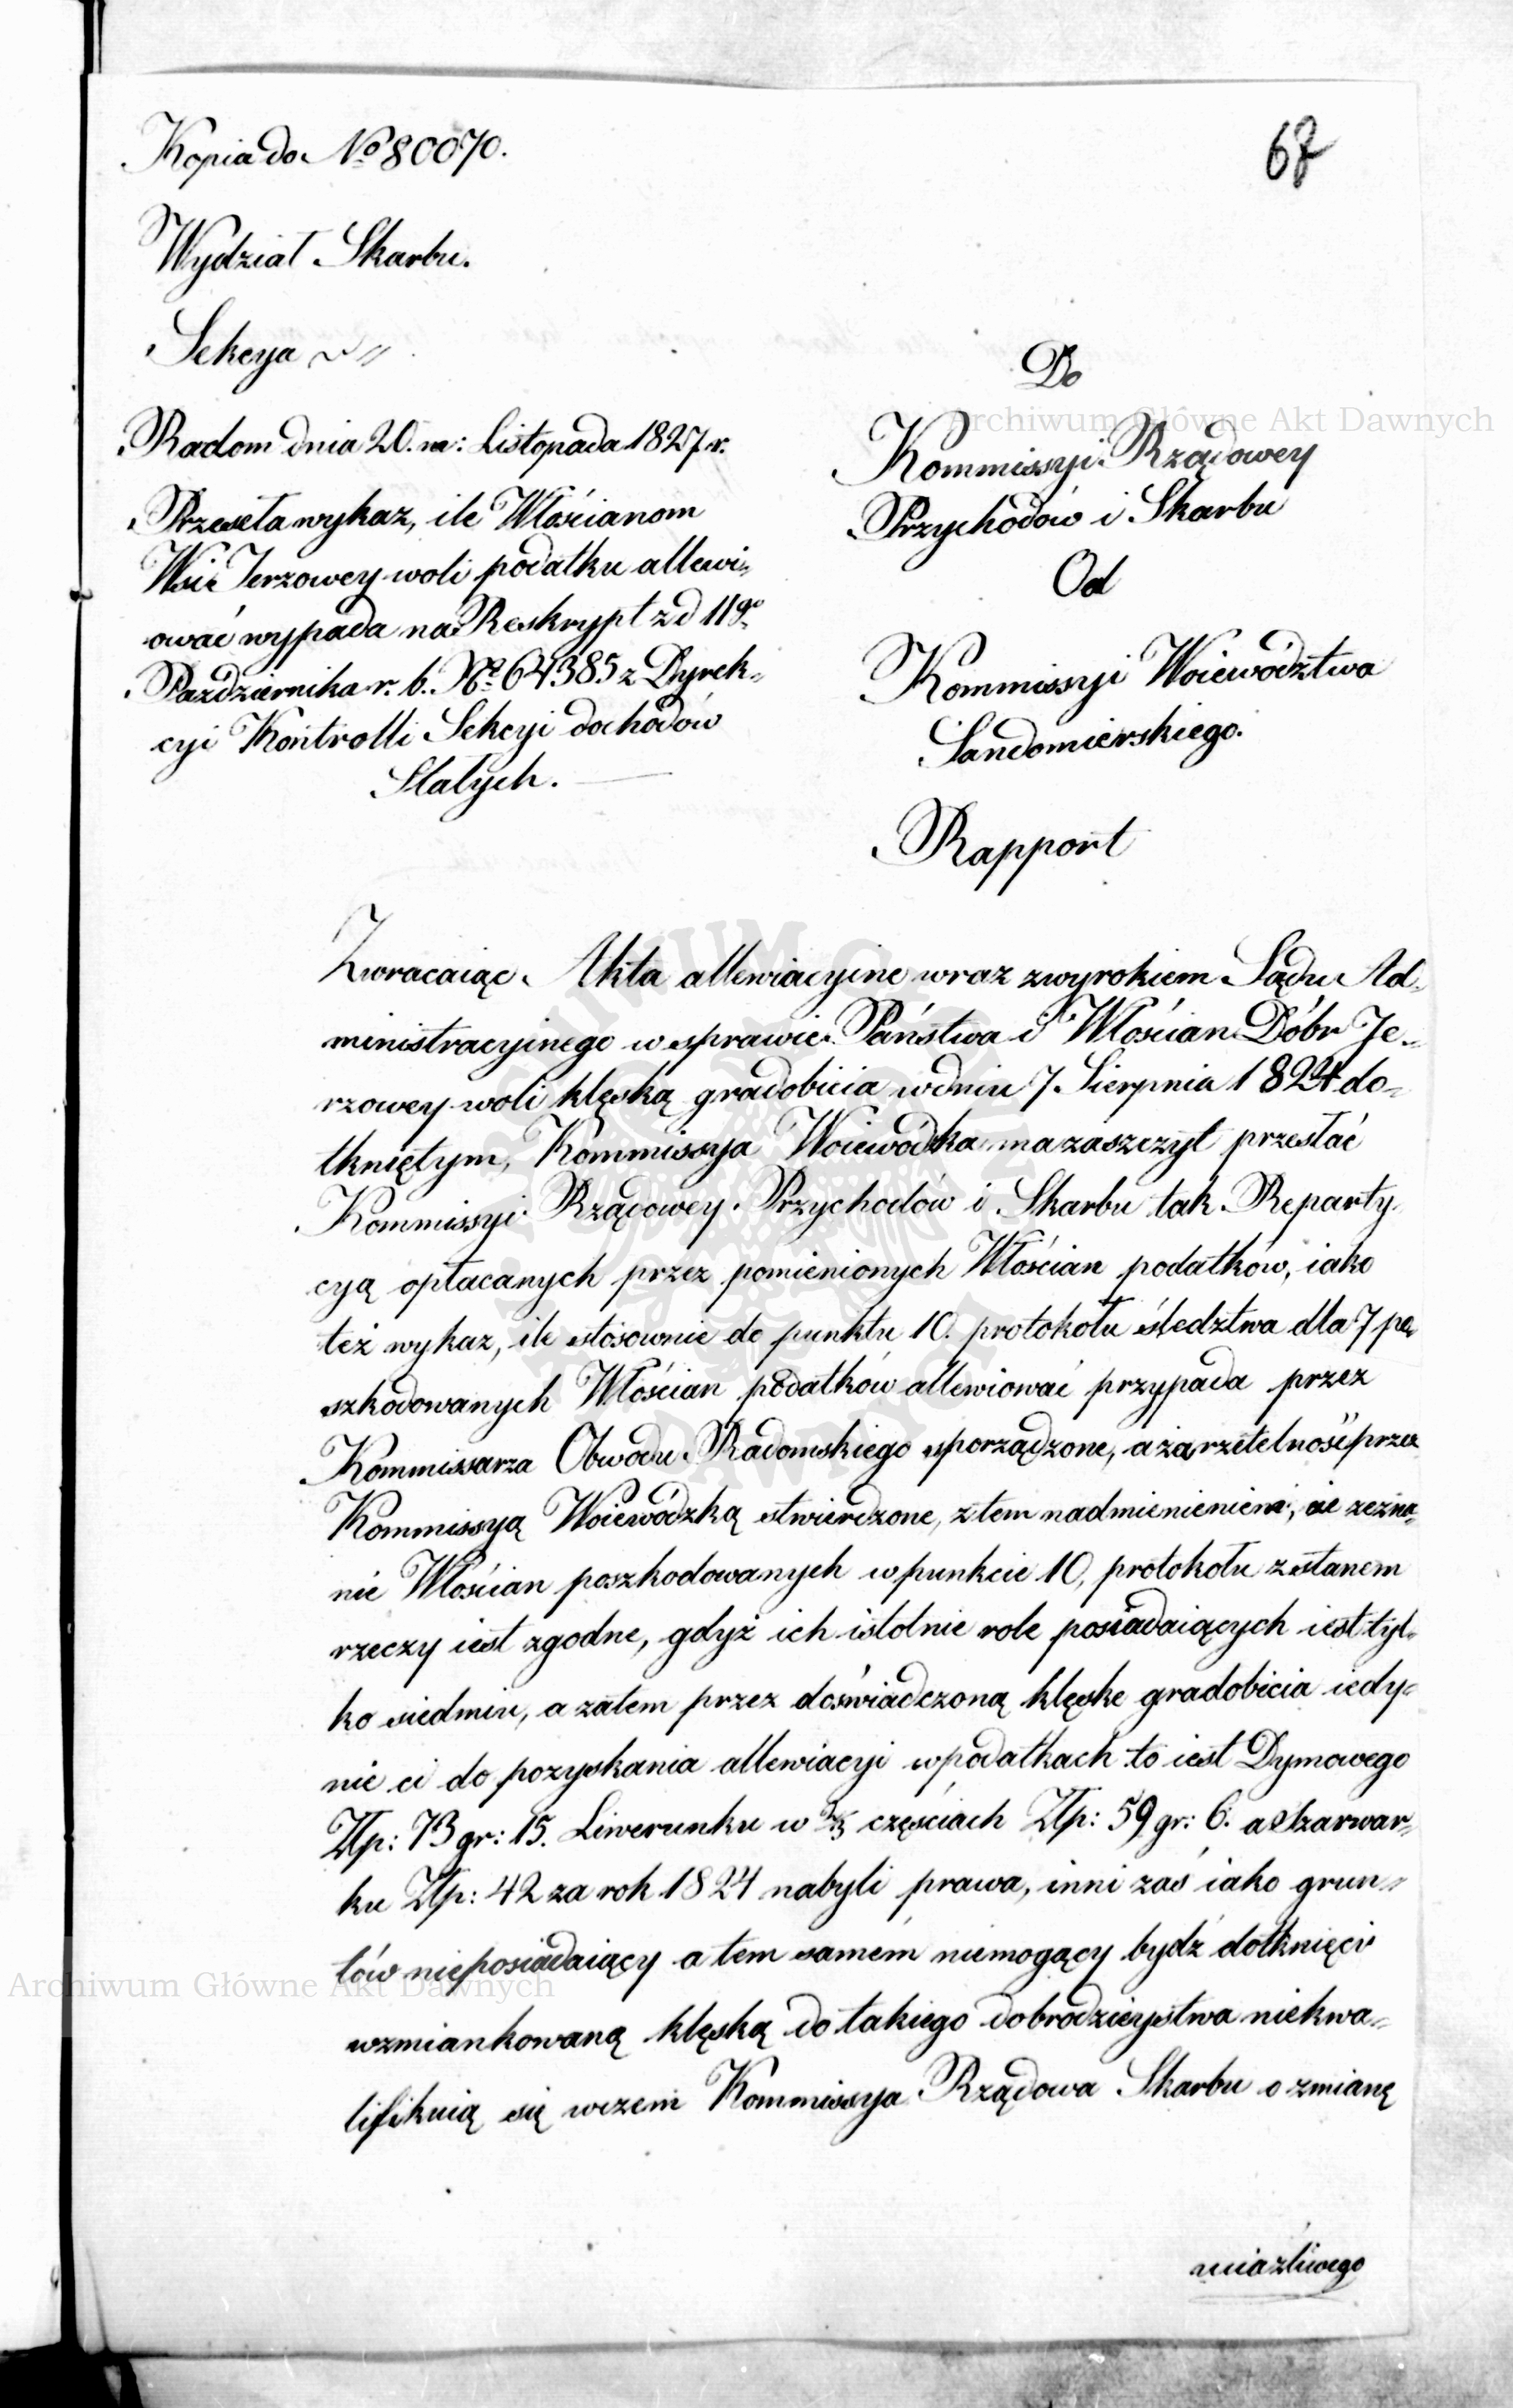 Kopia do Nº 80070.
67
Wydział Skarbu.
Sekcya
Radom dnia 20. m: Listopada 1827 r.
Przeseła wykaz, ile Włościanom
Wsi Jerzowey woli podatku allewi-
ować wypada na Reskrypt z d 11go
Pazdziernika r. b. Nº 64385 z Dyrek-
cyi Kontrolli Sekcyi dochodów
Stałych.
Do
Kommissyi Rządowey
Przychodów i Skarbu
Od
Kommissyi Woiewództwa
Sandomierskiego.
Rapport
Zwracaiąc Akta allewiacyine wraz z wyrokiem Sądu Ad-
ministracyinego w sprawie Państwa i Włościan Dóbr Je-
rzowey woli klęską gradobicia w dniu 7. Sierpnia 1824 do-
tkniętym, Kommissya Woiewódzka ma zaszczyt przesłać
Kommissyi Rządowey Przychodów i Skarbu tak Reparty-
cyą opłacanych przez pomienionych Włościan podatków, iako
też wykaz, ile stósownie do punktu 10. protokołu śledztwa dla 7 po-
szkodowanych Włościan podatków allewiować przypada przez
Kommissarza Obwodu Radomskiego sporządzone, a za rzetelność przez
Kommissyą Woiewódzką stwierdzone, z tem nadmienieniem, że zezna-
nie Włościan poszkodowanych w punkcie 10, protokołu z stanem
rzeczy iest zgodne, gdyż ich istotnie role posiadaiących iest tyl-
ko siedmiu, a zatem przez doświadczoną klęskę gradobicia iedy-
nie ci do pozyskania allewiacyi w podatkach to iest Dymowego
Złp: 73 gr: 15. Liwerunku w 2/3 częściach Złp: 59 gr: 6. a Szarwar-
ku Złp: 42 za rok 1824 nabyli prawa, inni zaś iako grun-
tów nieposiadaiący a tem samém niemogący bydź dotknięci
wzmiankowaną klęską do takiego dobrodzieystwa niekwa-
lifikuią się wczem Kommissya Rządowa Skarbu o zmianę
uciążliwego
Archiwum Główne Akt Dawnych
Archiwum Główne Akt Dawnych